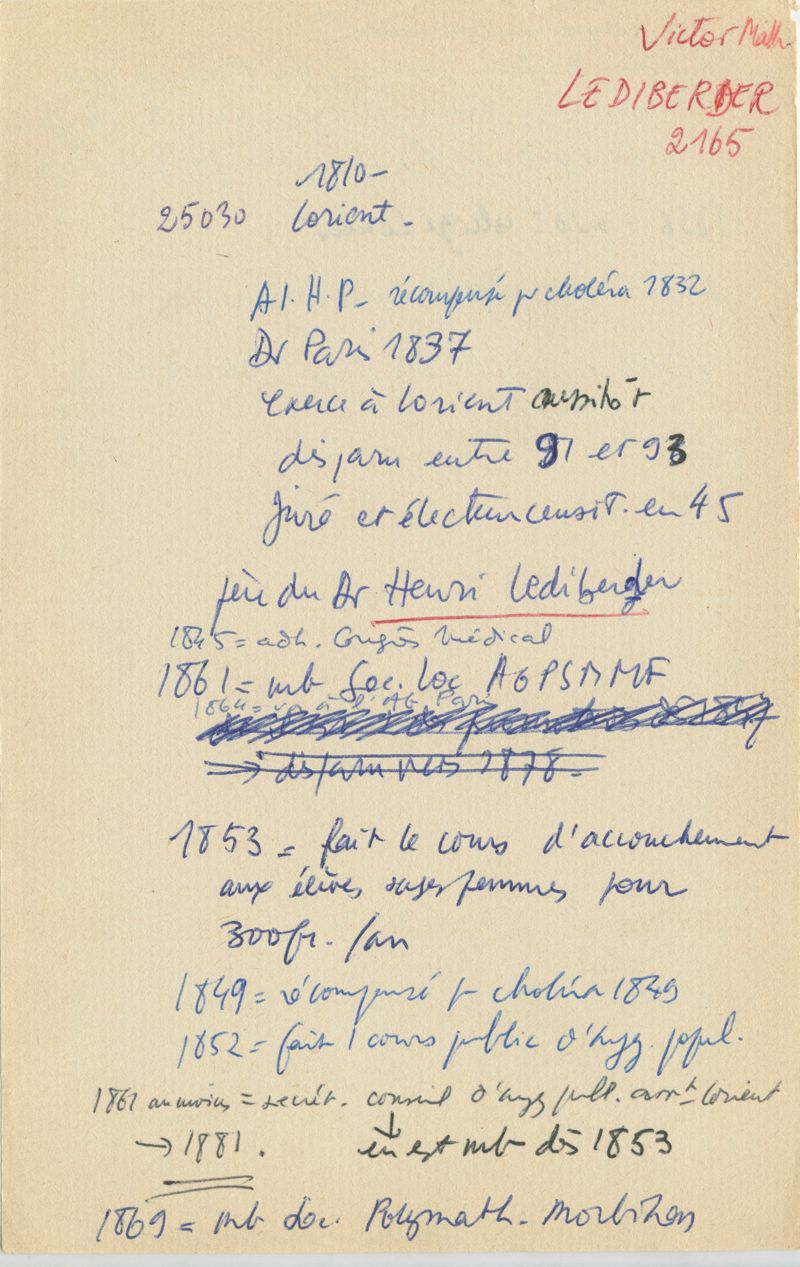 Victor Math.
LEDIBERDER
2165
1810-
25030 Lorient.
A I. H. P. récompensé pr choléra 1832
Dr Paris 1837
exerce à Lorient aussitôt
disparu entre 91 et 93
Juré et électeur censit. en 45
père du Dr Henri Lediberder
1845 = adh. Congrès Médical
1861 = mb Soc. loc AGPSMMF
1864 = à l'AG Paris
→ disparu vers 1878.
1853 = fait le cours d'accouchement
aux élèves sages femmes pour
300 fr. /an
1849 = récompensé pr choléra 1849
1852 = fait 1 cours public d'hyg. popul.
1861 au moins = secrét. conseil d'hyg publ. arrt Lorient
→ 1881. en est mb dès 1853
1869 = mb Soc. Polymath. Morbihan